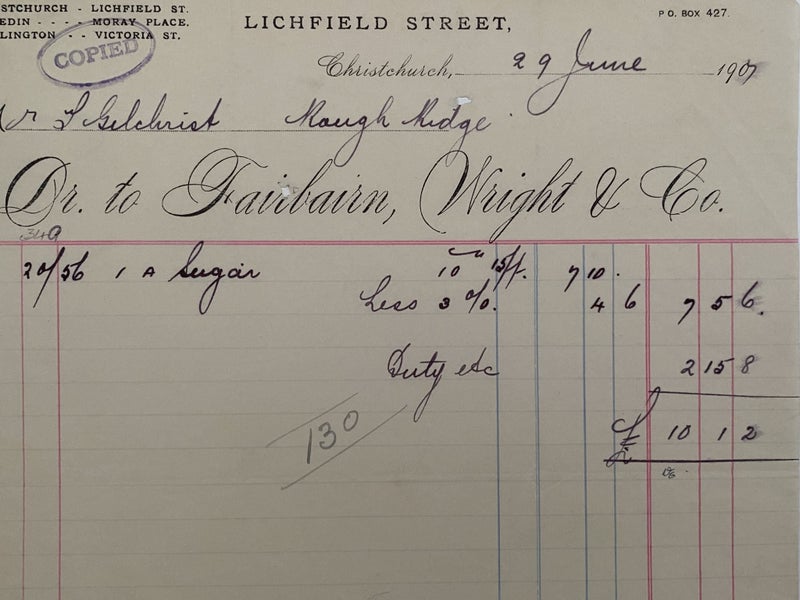 STCHURCH - LICHFIELD ST.
EDIN - - - - MORAY PLACE.
LINGTON - - VICTORIA ST.
COPIED
LICHFIELD STREET,
P O. BOX 427.
Christchurch, 29 June 1907
Mr J Gilchrist Rough Ridge
Dr. to Fairbairn, Wright & Co.
349
20/56 1 A Sugar 10 15/f. 7 10 .
Less 3 %. 4 6 7 5 6.
Duty etc 2 15 8
130
£ 10 1 2